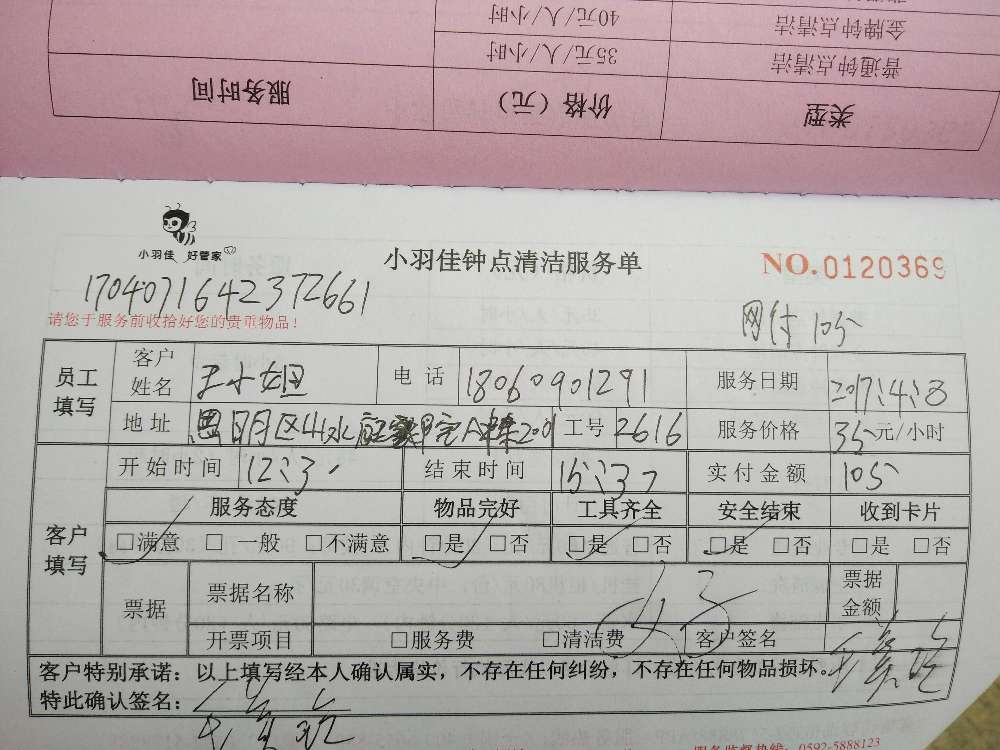 金牌钟点清洁 40元/人/小时
普通钟点清洁 35元/人/小时
类型 价格（元） 服务时间
小羽佳 好管家
小羽佳钟点清洁服务单
NO.0120369
1704071642372661
网付 105
请您于服务前收拾好您的贵重物品！
员工填写
客户姓名 王小姐 电话 18060901291 服务日期 2017.4.8
地址 思明区山水 2001 工号 2616 服务价格 35元/小时
客户填写
开始时间 12:3 结束时间 15:3 实付金额 105
服务态度 物品完好 工具齐全 安全结束 收到卡片
□满意 □一般 □不满意 □是 □否 □是 □否 □是 □否 □是 □否
票据 票据名称 票据金额
开票项目 □服务费 □清洁费 客户签名
客户特别承诺：以上填写经本人确认属实，不存在任何纠纷，不存在任何物品损坏。
特此确认签名：
服务监督热线：0592-5888123